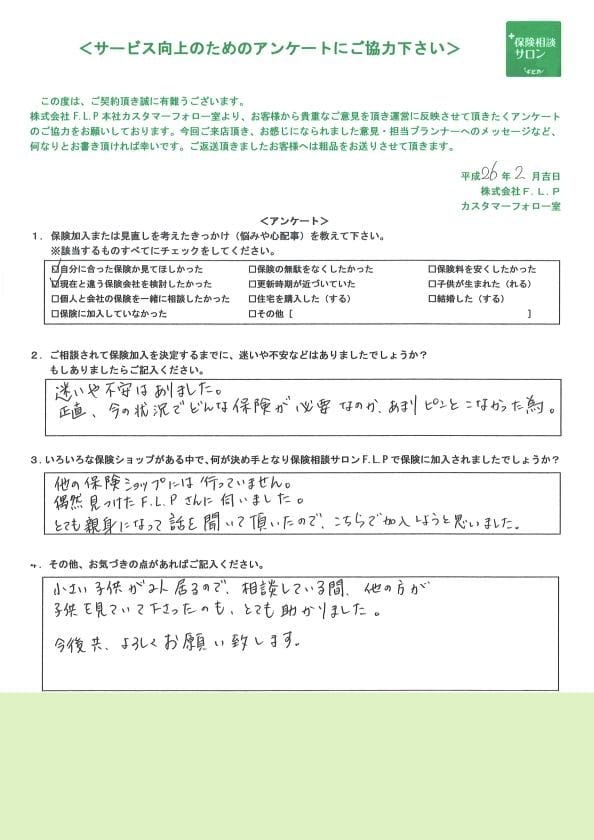 ＜サービス向上のためのアンケートにご協力下さい＞
保険相談
サロン
この度は、ご契約頂き誠に有難うございます。
株式会社F.L.P本社カスタマーフォロー室より、お客様から貴重なご意見を頂き運営に反映させて頂きたくアンケート
のご協力をお願いしております。今回ご来店頂き、お感じになられました意見・担当プランナーへのメッセージなど、
何なりとお書き頂ければ幸いです。ご返送頂きましたお客様へは粗品をお送りさせて頂きます。
平成26年2月吉日
株式会社F.L.P
カスタマーフォロー室
＜アンケート＞
1．保険加入または見直しを考えたきっかけ（悩みや心配事）を教えて下さい。
※該当するものすべてにチェックをしてください。
☑自分に合った保険か見てほしかった □保険の無駄をなくしたかった □保険料を安くしたかった
☑現在と違う保険会社を検討したかった □更新時期が近づいていた □子供が生まれた（れる）
□個人と会社の保険を一緒に相談したかった □住宅を購入した（する） □結婚した（する）
□保険に加入していなかった □その他［ ］
2．ご相談されて保険加入を決定するまでに、迷いや不安などはありましたでしょうか？
もしありましたらご記入ください。
迷いや不安はありました。
正直、今の状況でどんな保険が必要なのか、あまりピンとこなかった為。
3．いろいろな保険ショップがある中で、何が決め手となり保険相談サロンF.L.Pで保険に加入されましたでしょうか？
他の保険ショップには行っていません。
偶然見つけたF.L.Pさんに伺いました。
とても親身になって話を聞いて頂いたので、こちらで加入しようと思いました。
4．その他、お気づきの点があればご記入ください。
小さい子供が2人居るので、相談している間、他の方が
子供を見ていて下さったのも、とても助かりました。
今後共、よろしくお願い致します。